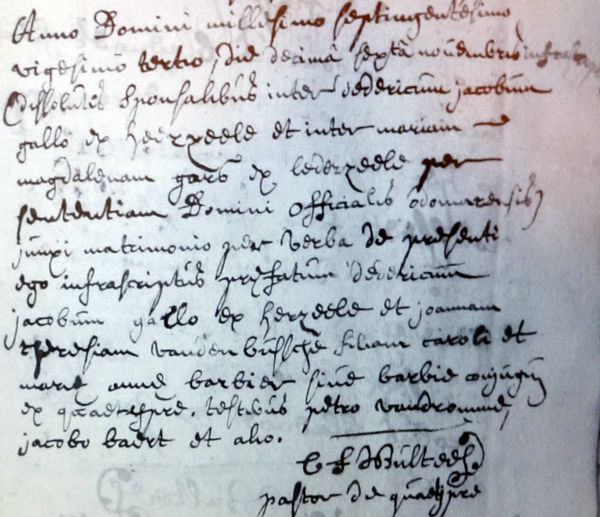 Anno Domini millesimo septingentesimo
vigesimo tertio die decima sexta novembris
(dissolutis sponsalibus inter dedericum jacobum
gallo ex herzeele et inter mariam
magdalenam gars ex lederzeele per
sententiam Domini officialis odomarensis)
junxi matrimonio per verba de presenti
ego infrascriptus prefatum dedericum
jacobum gallo ex herzeele et joannam
theresiam vanden bussche filiam caroli et
marie anne barbier sive barbie conjugum
ex quaetypre. testibus petro vandromme,
jacobo baert et alio.
Bulteel
pastor de quaetypre